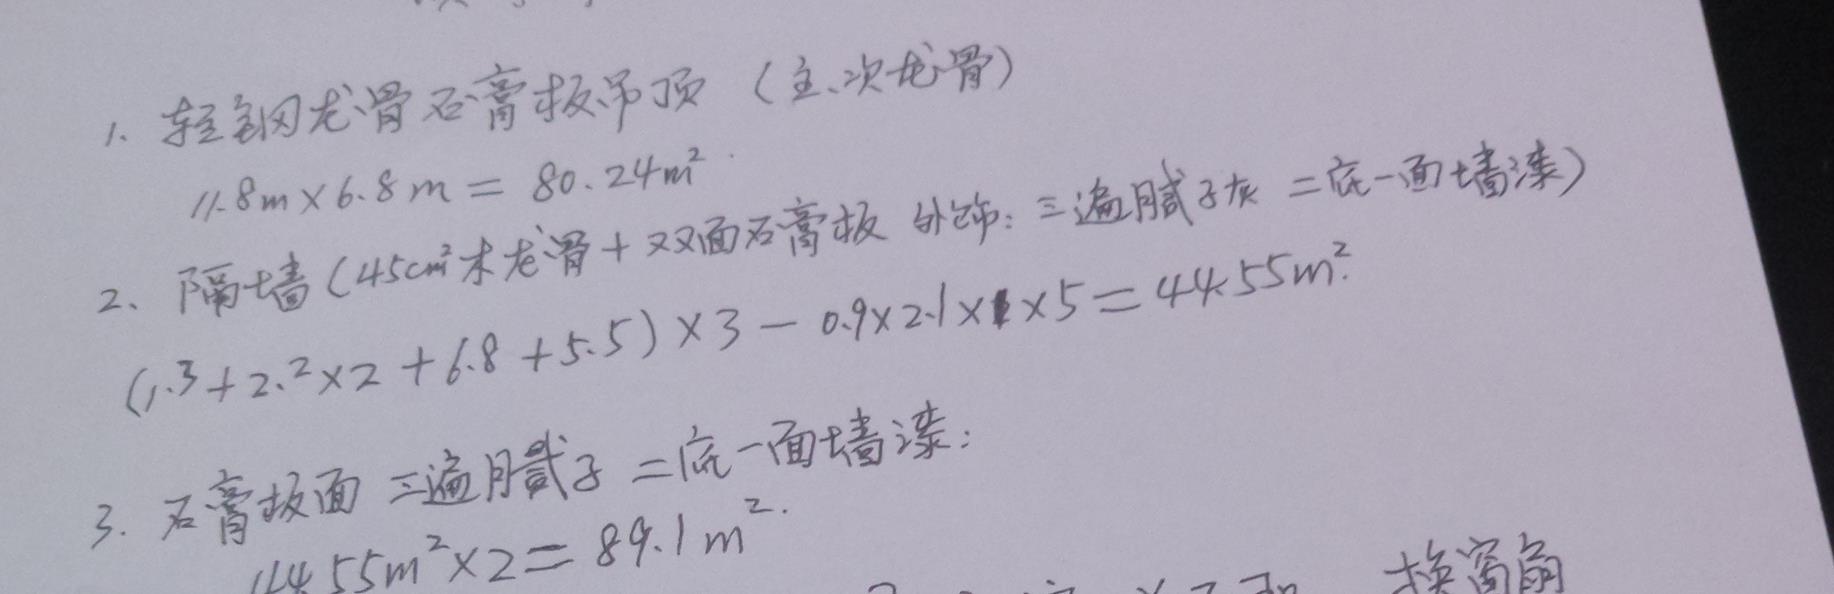 1、轻钢龙骨石膏板吊顶（主、次龙骨）
11.8m×6.8m＝80.24m²
2、隔墙（45cm²木龙骨＋双面石膏板 外饰：三遍腻子灰 二底一面墙漆）
(1.3+2.2×2+6.8+5.5)×3－0.9×2.1×1×5＝44.55m²
3. 石膏板面 三遍腻子 二底一面墙漆：
44.55m²×2＝89.1m².
换窗扇